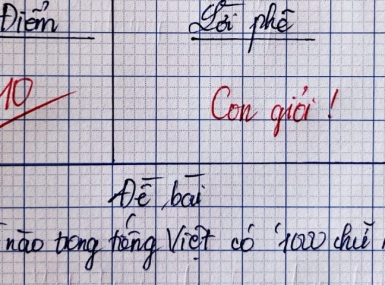 Điểm
Lời phê
10
Con giỏi !
Đề bài
nào trong tiếng Việt có "1000 chữ